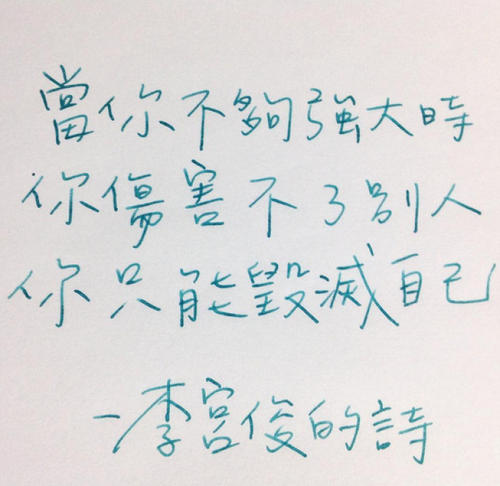 當你不夠強大時
你傷害不了別人
你只能毀滅自己
-李宮俊的詩